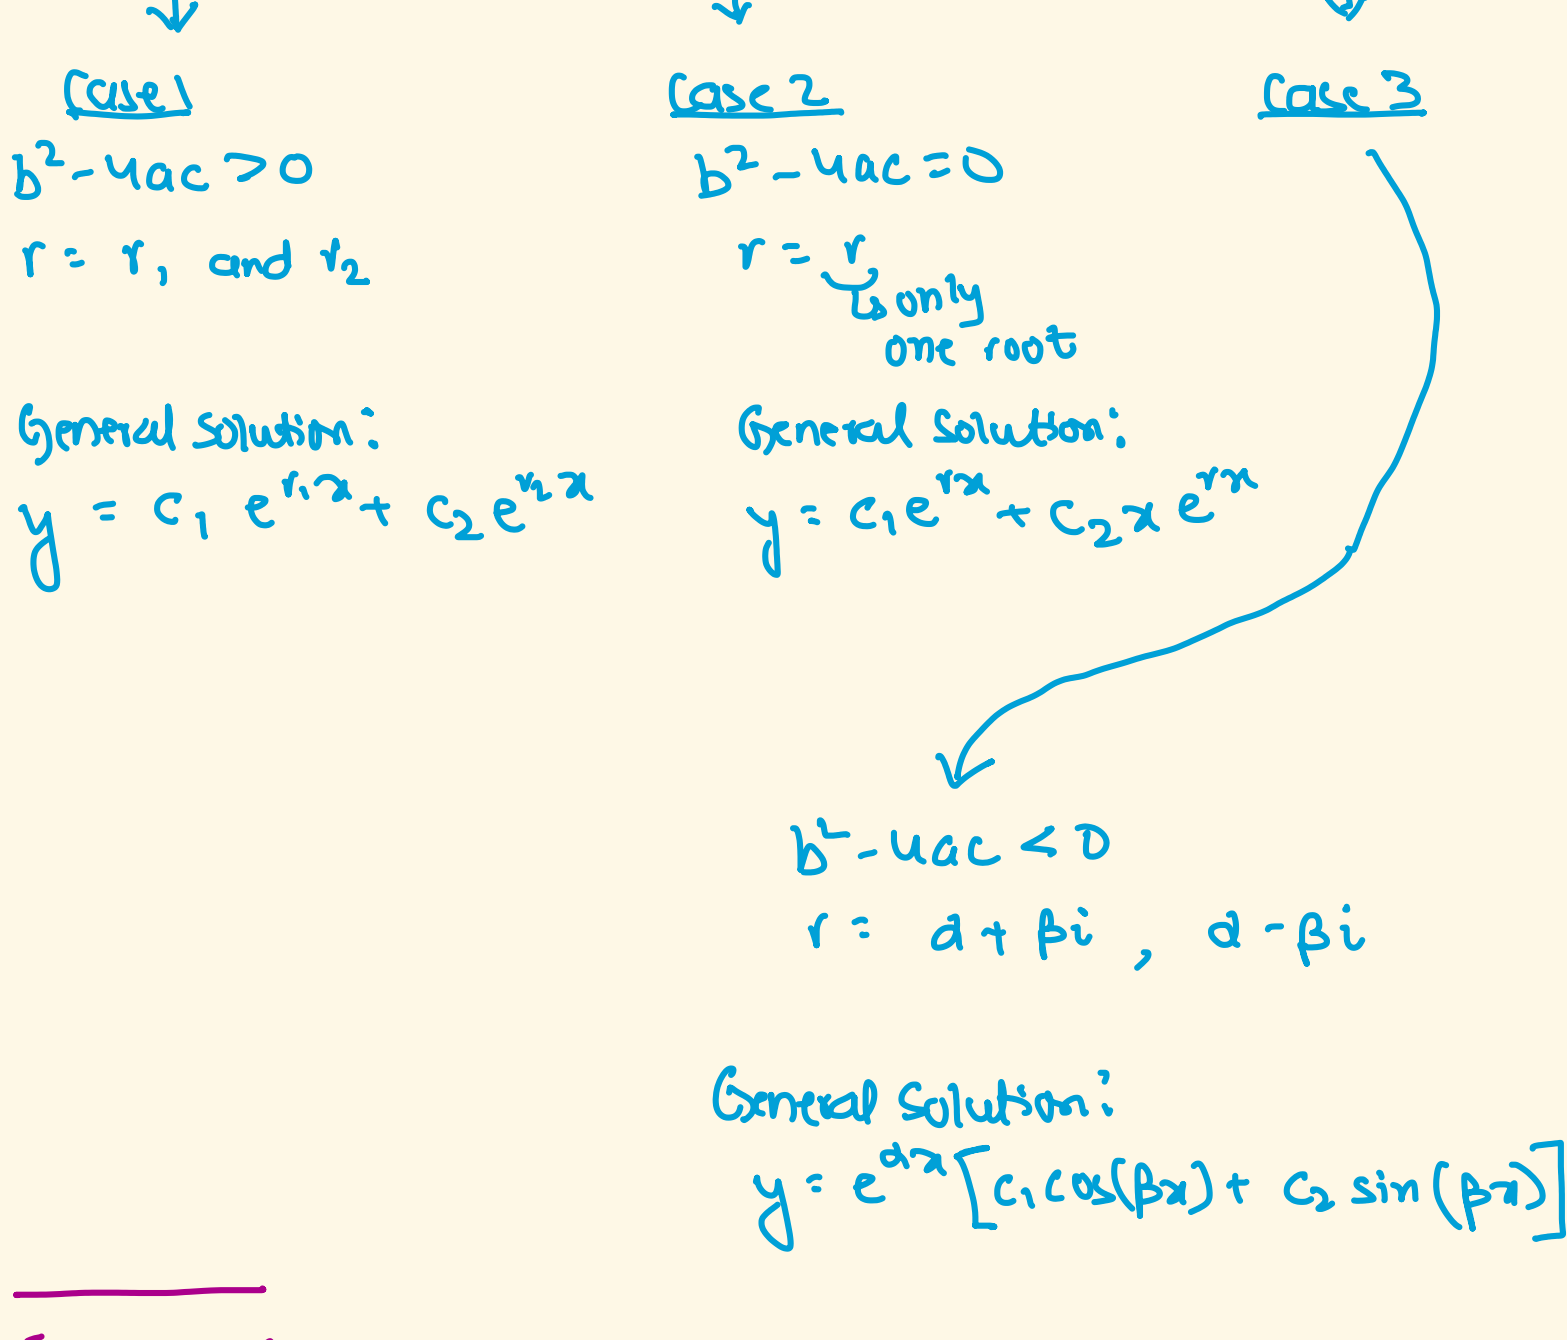 Case 1
b² - 4ac > 0
r = r₁ and r₂
General solution:
y = c₁ e^{r₁x} + c₂ e^{r₂x}
Case 2
b² - 4ac = 0
r = r
↳ only
one root
General solution:
y = c₁e^{rx} + c₂ x e^{rx}
Case 3
b² - 4ac < 0
r = α + βi , α - βi
General solution:
y = e^{αx} [c₁ cos(βx) + c₂ sin(βx)]